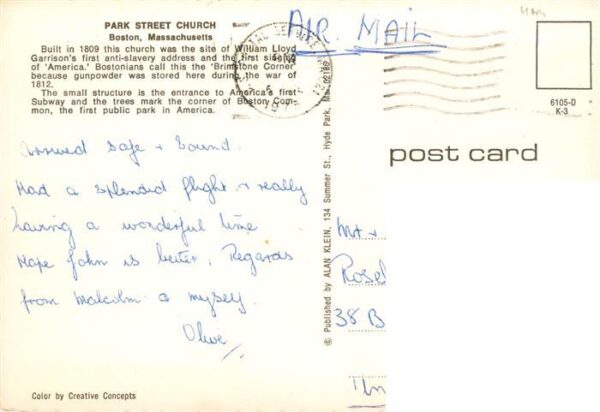 PARK STREET CHURCH
Boston, Massachusetts
Built in 1809 this church was the site of William Lloyd
Garrison's first anti-slavery address and the first singing
of 'America.' Bostonians call this the 'Brimstone Corner'
because gunpowder was stored here during the war of
1812.
The small structure is the entrance to America's first
Subway and the trees mark the corner of Boston Com-
mon, the first public park in America.
AIR MAIL
6105-D
K-3
post card
Arrived safe + sound.
Had a splendid flight + really
having a wonderful time
Hope John is better. Regards
from Malcolm & myself.
Olive
© Published by ALAN KLEIN, 134 Summer St., Hyde Park, Ma. 02136
Mr +
Rosel
38 B
Un
Color by Creative Concepts